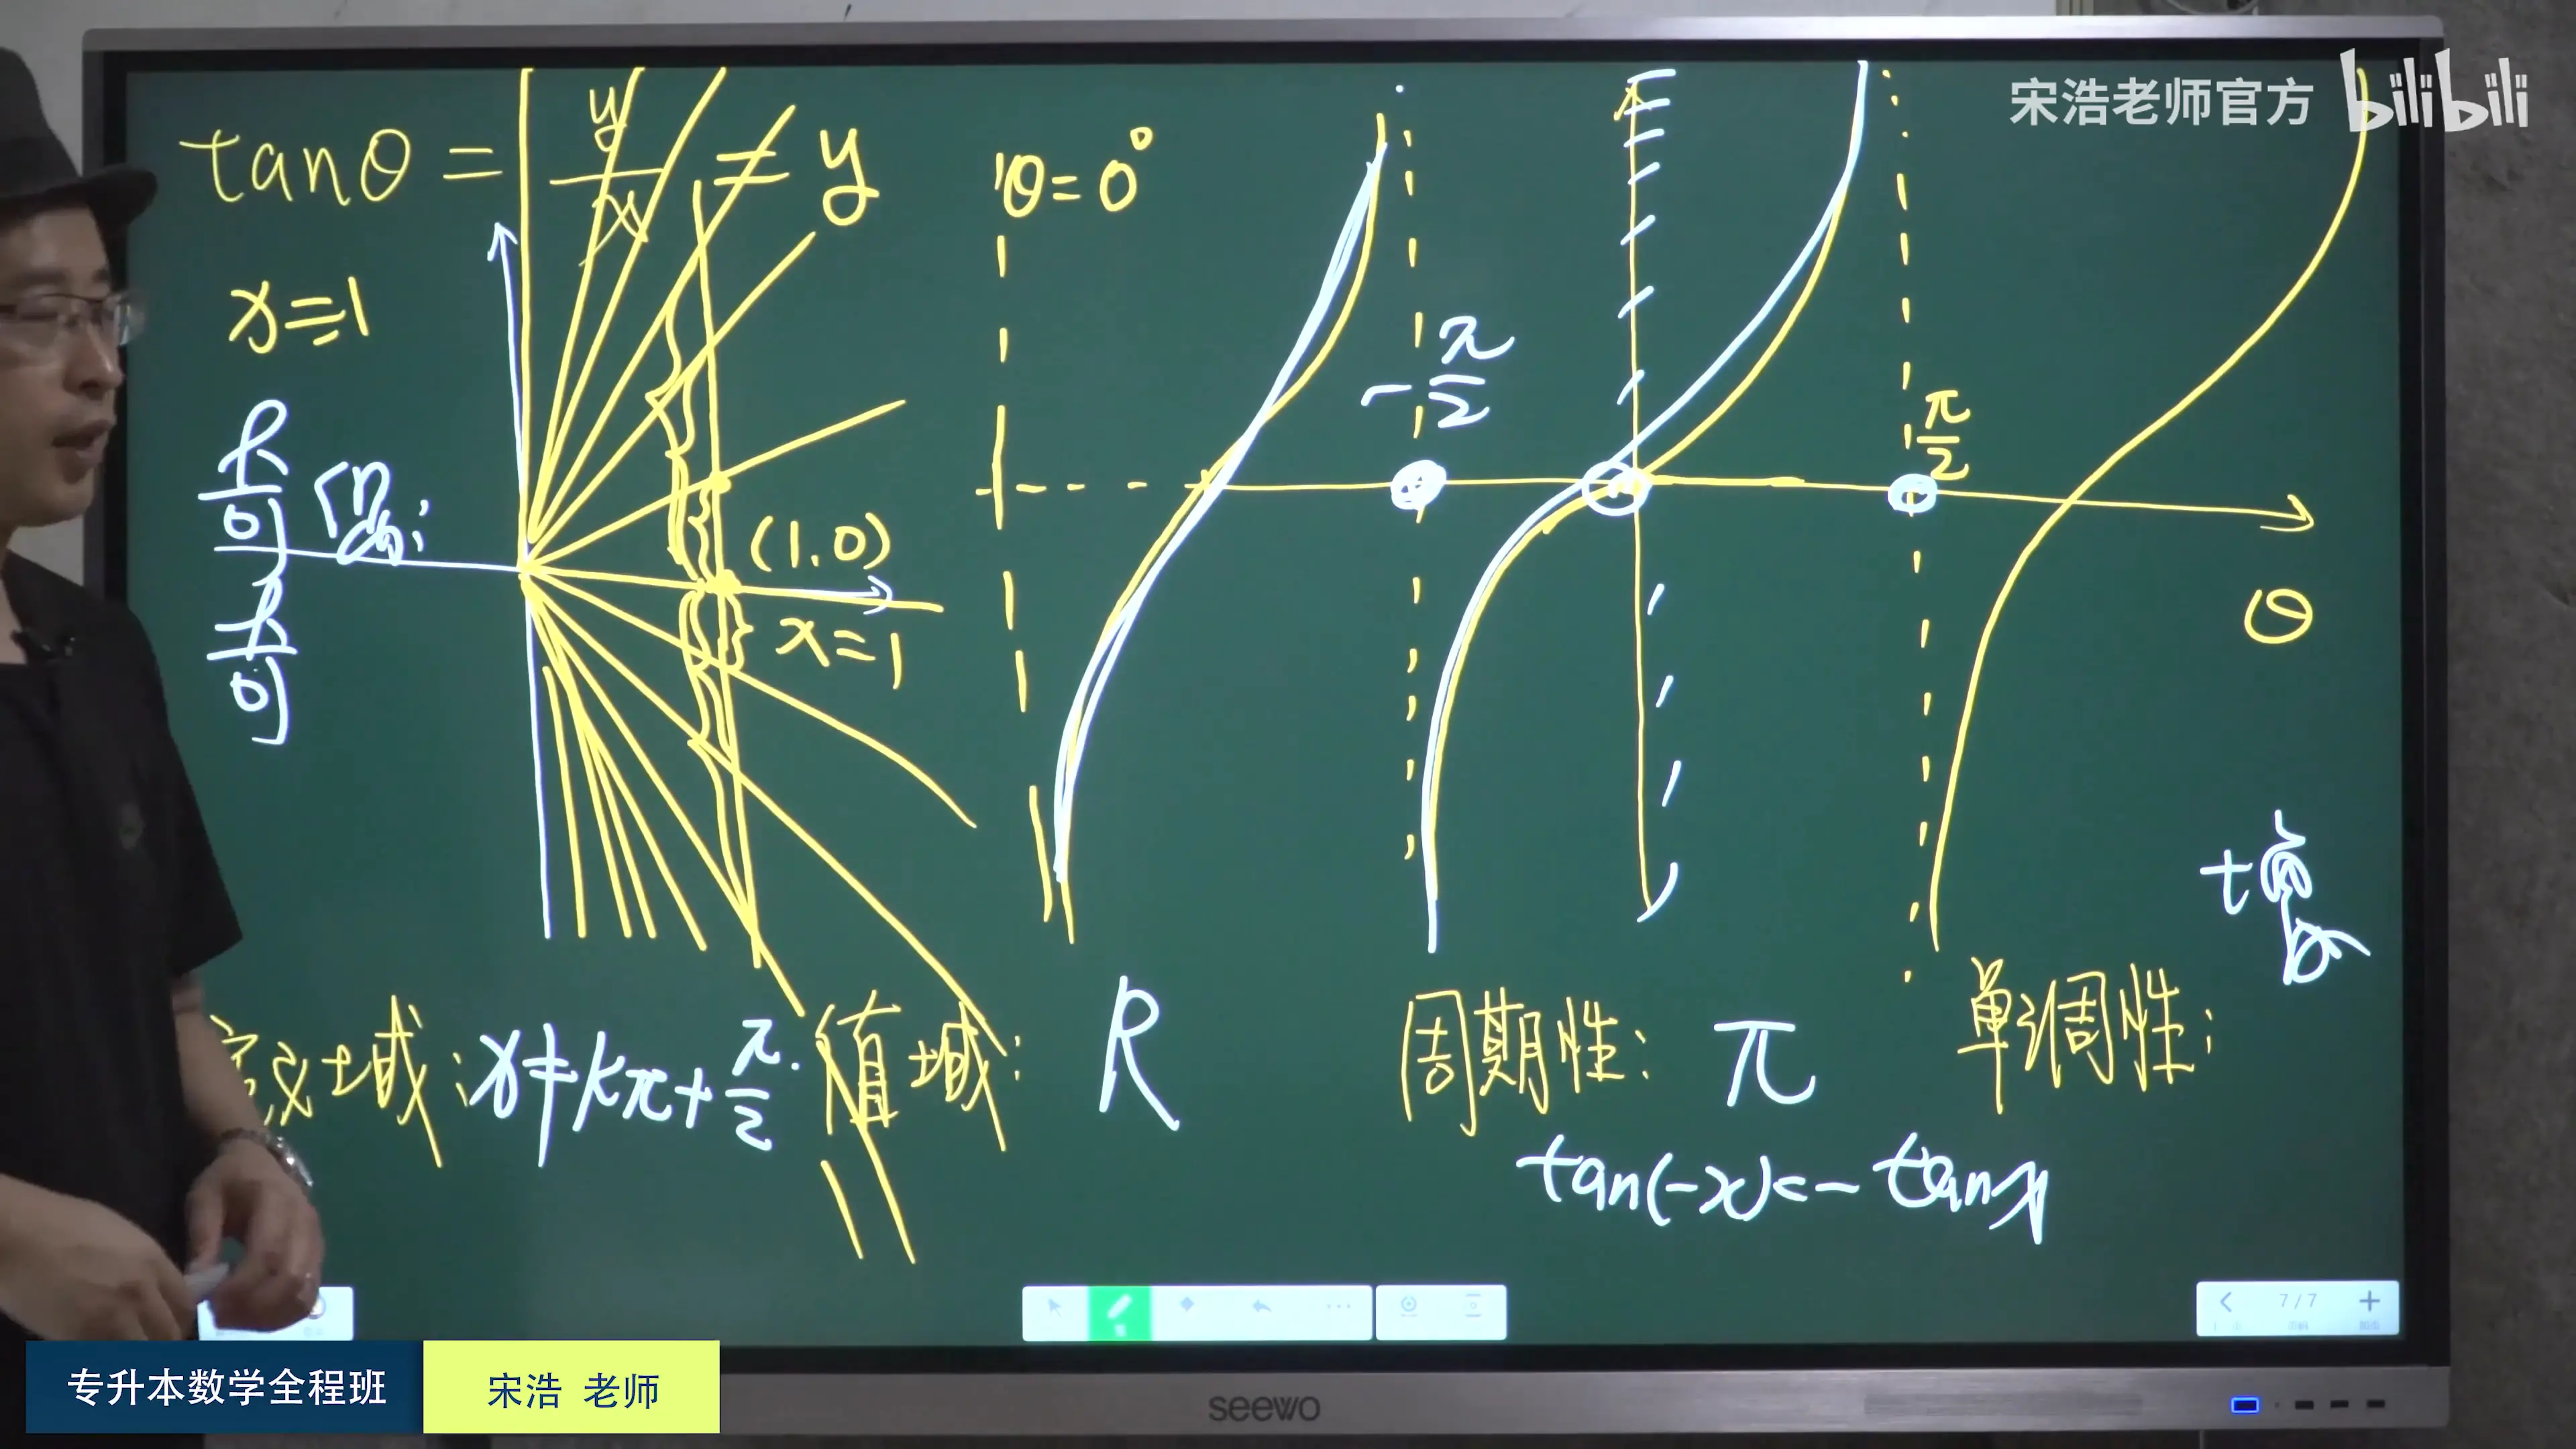 宋浩老师官方 bilibili
tanθ = y/x = y
θ=0°
x=1
奇偶:
奇
(1,0)
x=1
-π/2
π/2
θ
定义域: x≠kπ+π/2.
值域: R
周期性: π
单调性:
tan(-x)=-tanx
7/7
专升本数学全程班
宋浩 老师
seewo